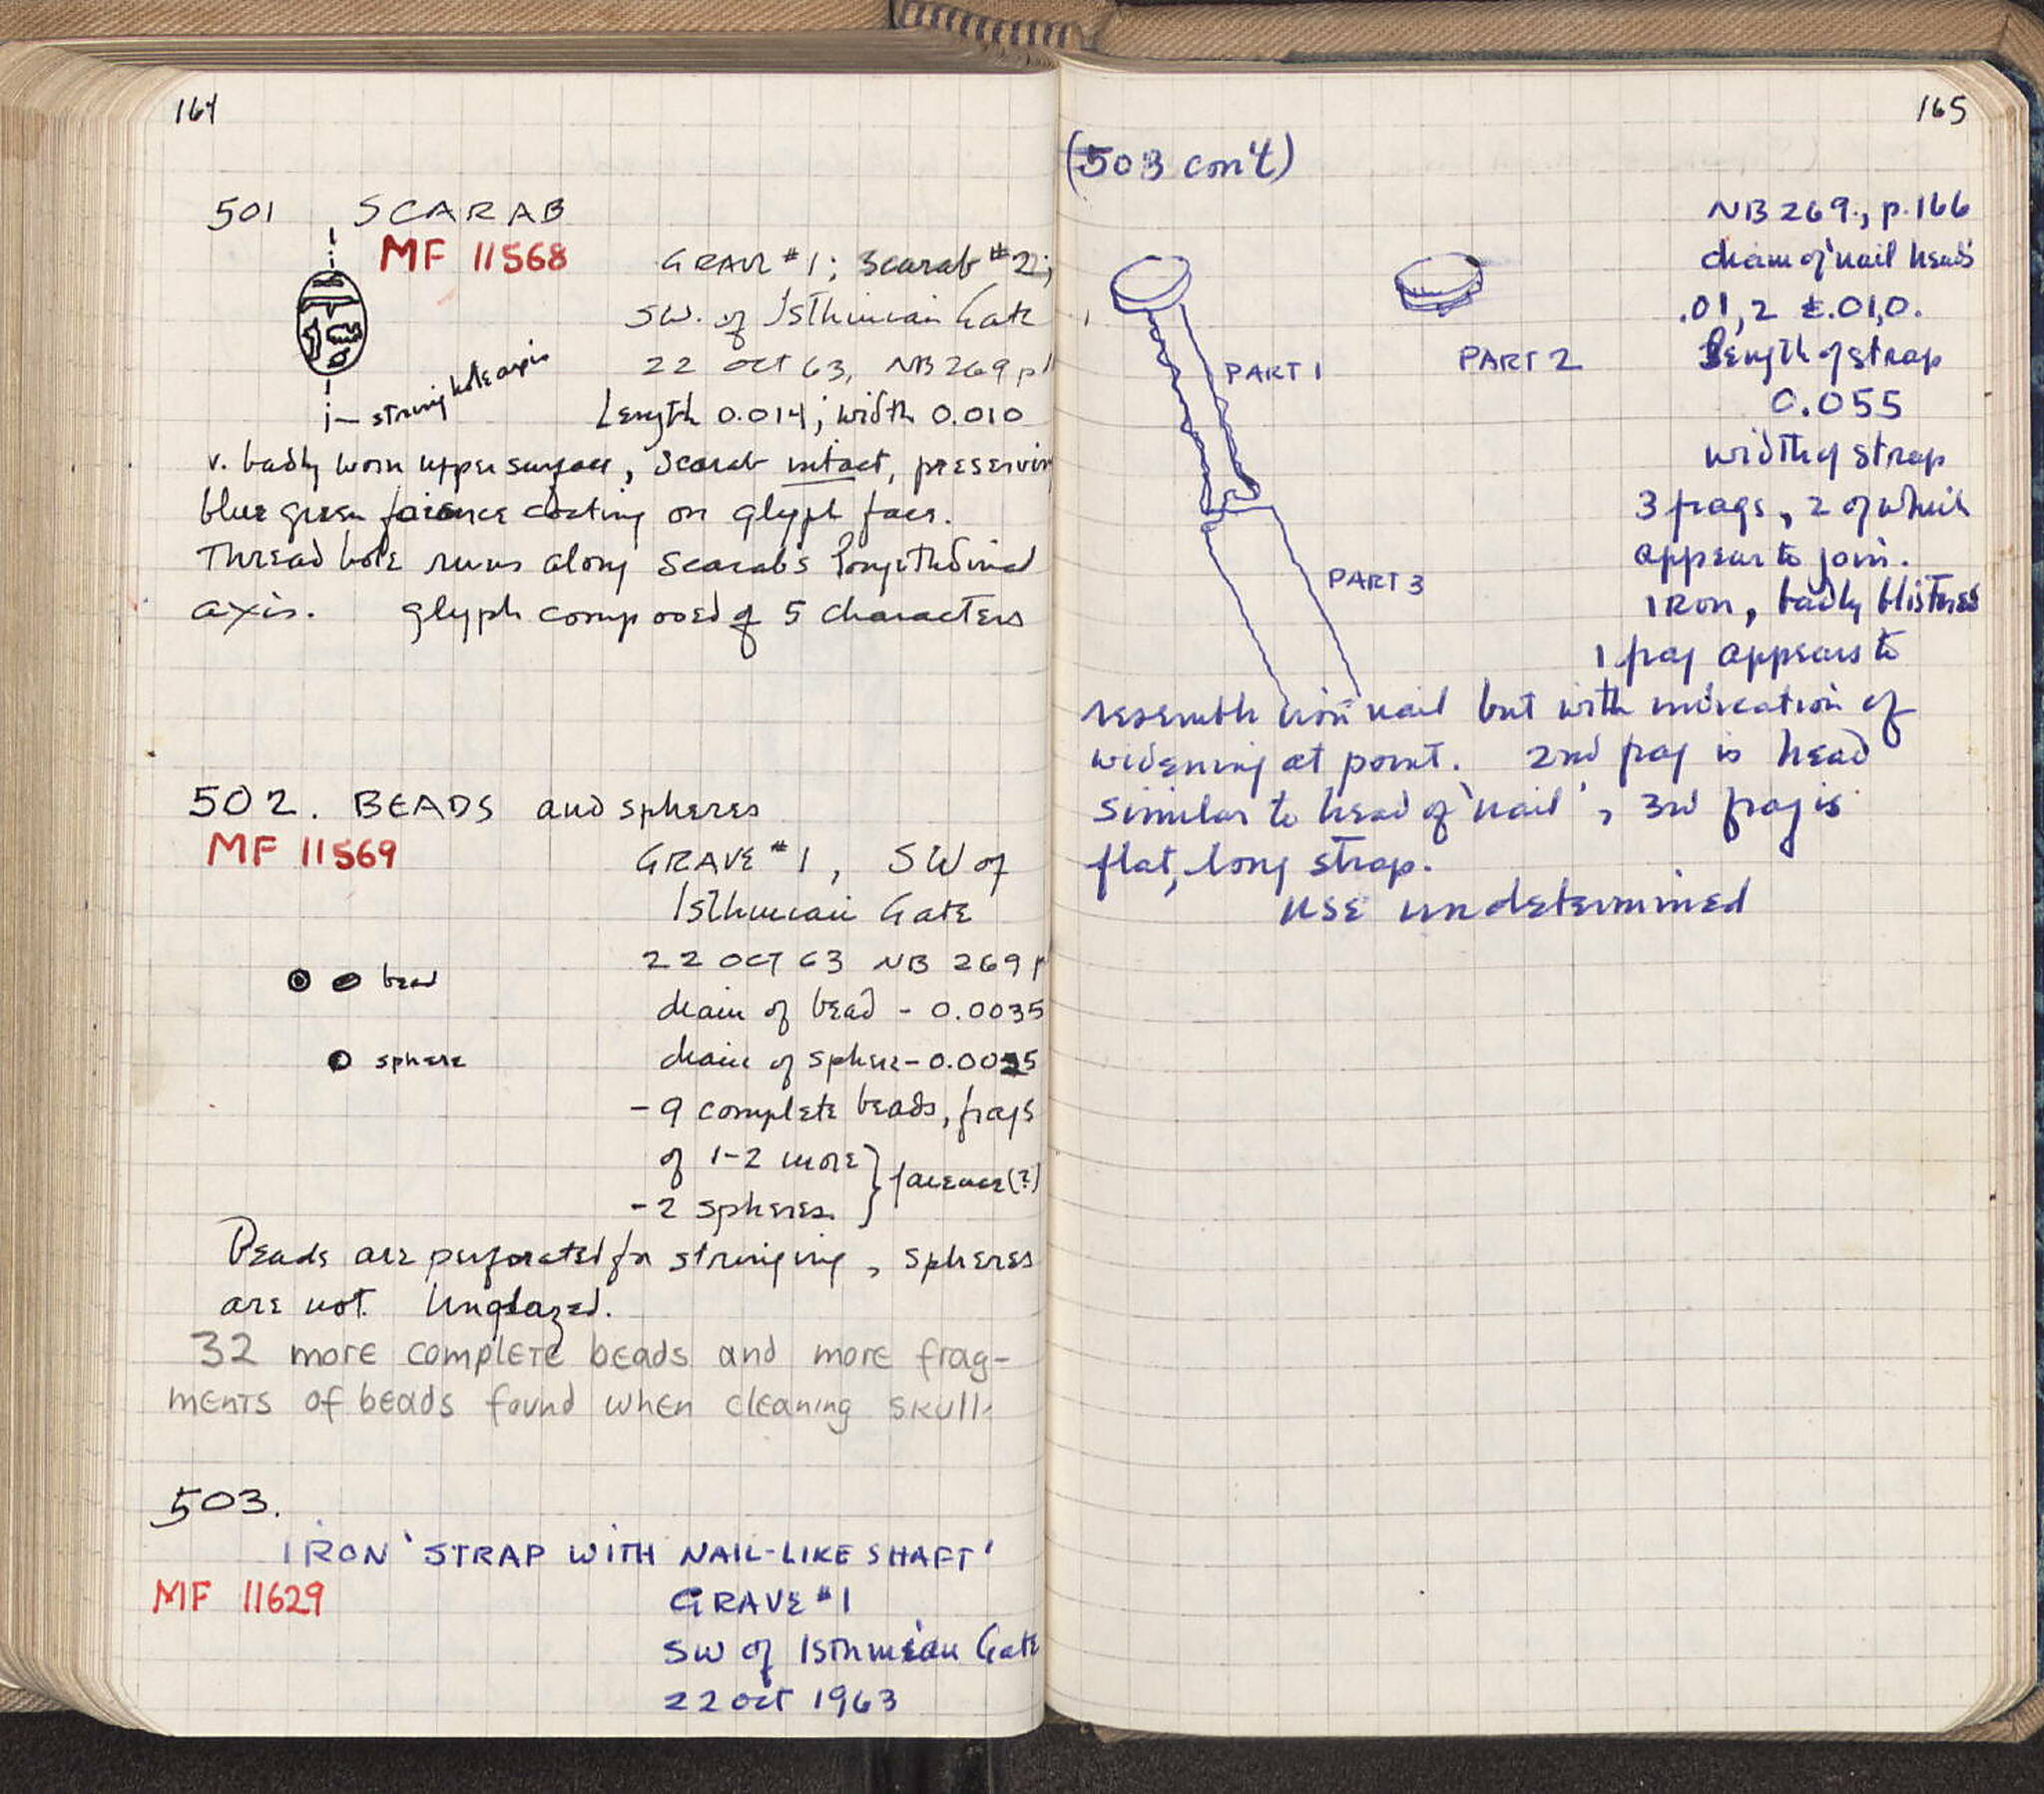 164
501 SCARAB
MF 11568
GRAVE #1; Scarab #2;
SW. of Isthmian Gate
22 OCT 63, NB 269 p
string hole axis
Length 0.014; width 0.010
v. badly worn upper surface, scarab intact, preservin
blue green faience coating on glyph face.
Thread hole runs along scarab's longitudinal
axis. glyph composed of 5 characters
502. BEADS and spheres
MF 11569
GRAVE #1, SW of
Isthmian Gate
22 OCT 63 NB 269 p
bead
diam of bead - 0.0035
sphere
diam of sphere - 0.0025
- 9 complete beads, frags
of 1-2 more
faience (?)
- 2 spheres.
Beads are perforated for stringing, spheres
are not. Unglazed.
32 more complete beads and more frag-
ments of beads found when cleaning skull.
503.
IRON 'STRAP WITH NAIL-LIKE SHAFT'
MF 11629
GRAVE #1
SW of Isthmian Gate
22 Oct 1963
165
(503 con't)
NB 269., p. 166
diam of 'nail heads'
.01,2 & .01,0.
PART 1
PART 2
Length of strap
0.055
width of strap
3 frags, 2 of which
appear to join.
PART 3
Iron, badly blistered
1 frag appears to
resemble iron nail but with indication of
widening at point. 2nd frag is head
similar to head of 'nail', 3rd frag is
flat, long strap.
Use undetermined